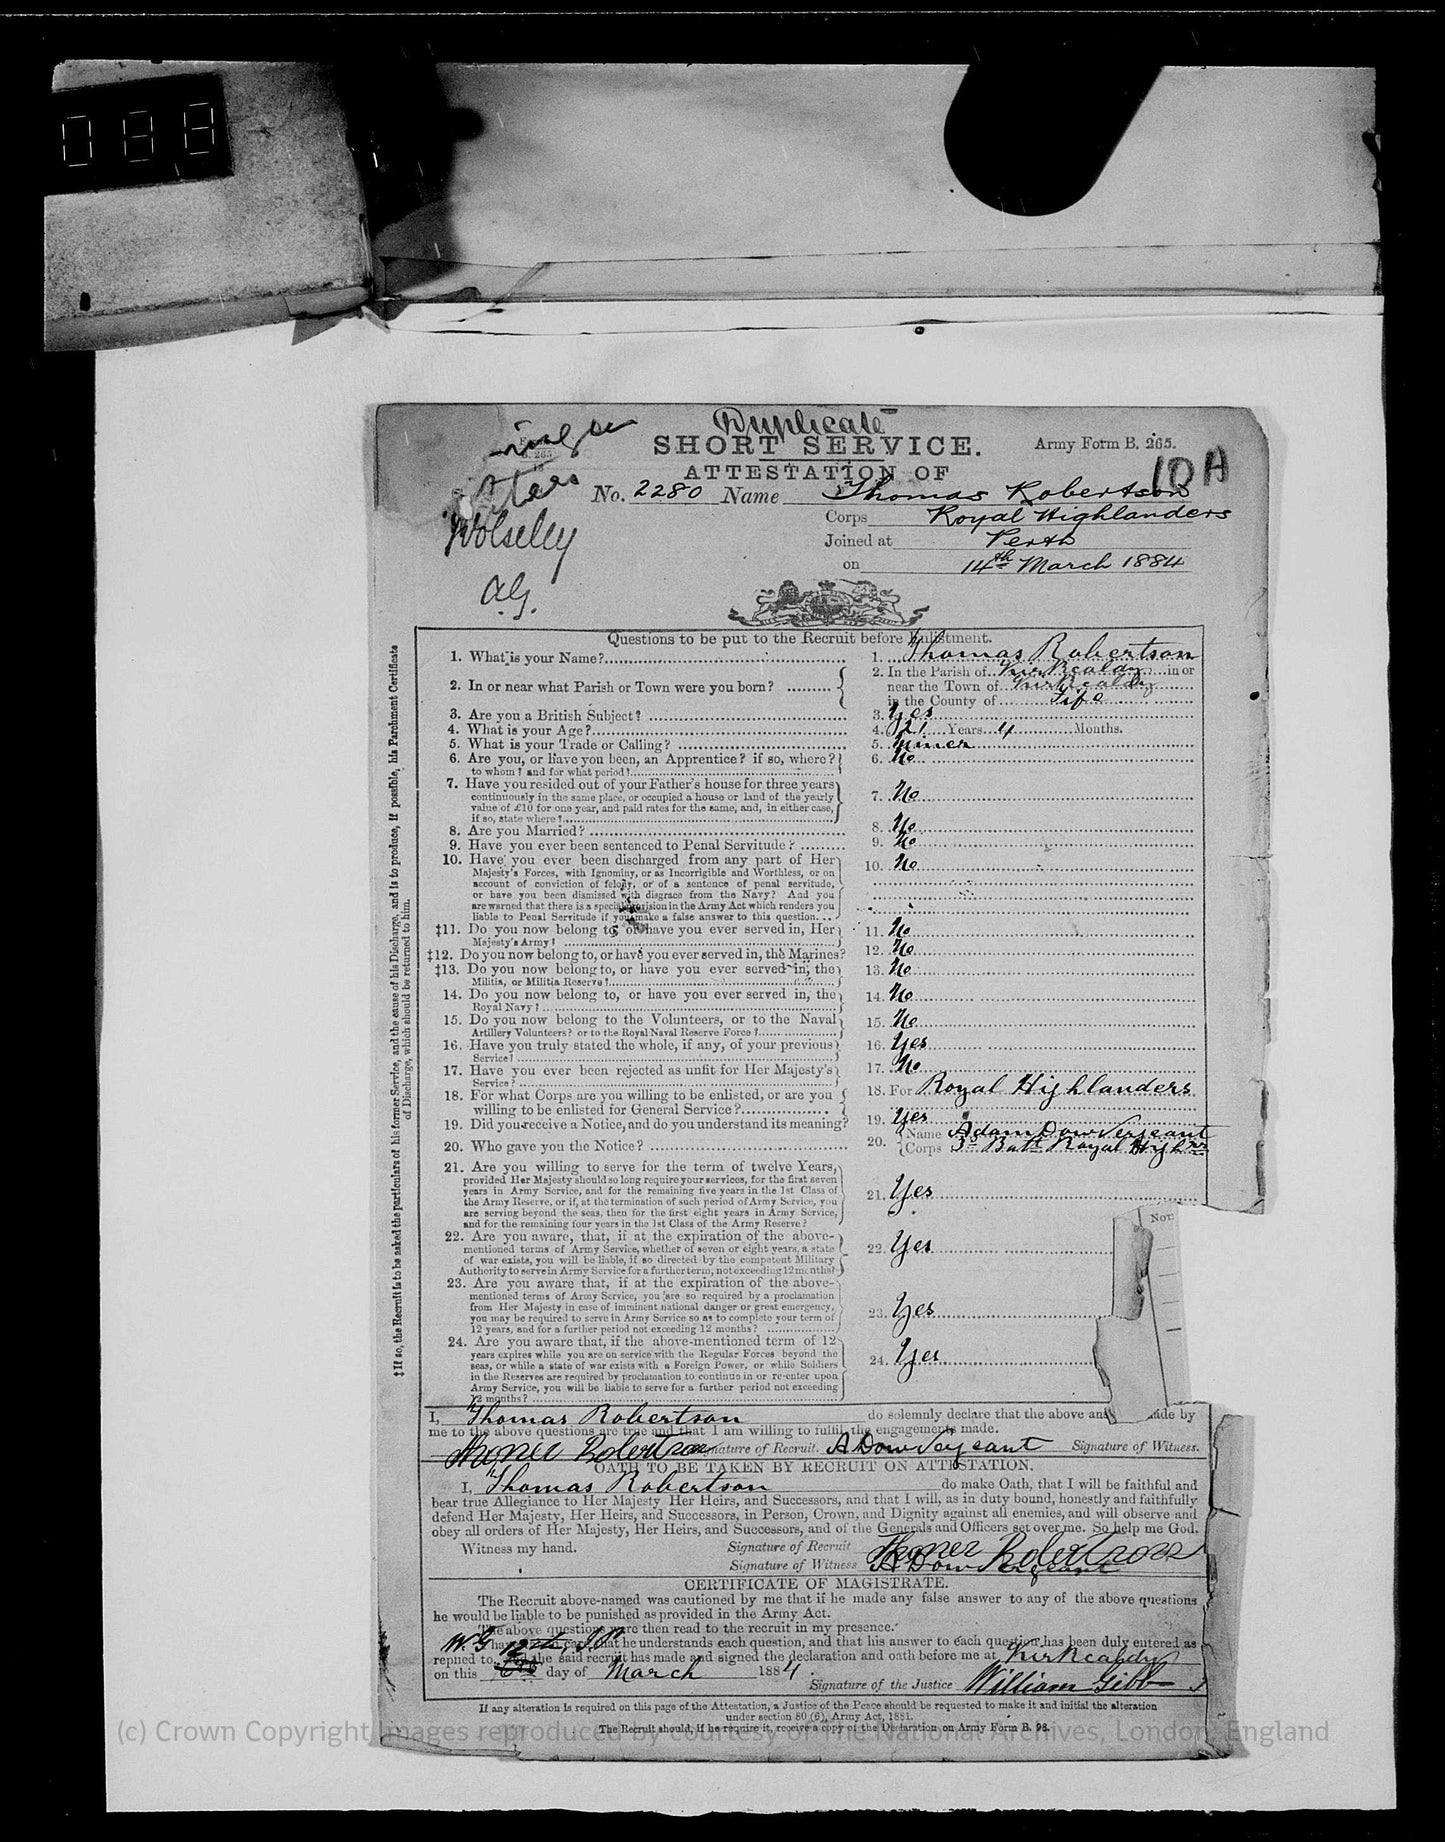 088
Duplicate
SHORT SERVICE.
Army Form B. 265.
10A
ATTESTATION OF
No. 2280 Name Thomas Robertson
Corps Royal Highlanders
Joined at Perth
on 14th March 1884
Wolseley
A.G.
Questions to be put to the Recruit before Enlistment.
1. What is your Name? 1. Thomas Robertson
2. In or near what Parish or Town were you born? 2. In the Parish of Kirkcaldy in or
near the Town of Kirkcaldy
in the County of Fife
3. Are you a British Subject? 3. Yes
4. What is your Age? 4. 21 Years 4 Months.
5. What is your Trade or Calling? 5. Miner
6. Are you, or have you been, an Apprentice? if so, where? 6. No
to whom? and for what period?
7. Have you resided out of your Father's house for three years
continuously in the same place, or occupied a house or land of the yearly 7. No
value of £10 for one year, and paid rates for the same, and, in either case,
if so, state where?
8. Are you Married? 8. No
9. Have you ever been sentenced to Penal Servitude? 9. No
10. Have you ever been discharged from any part of Her 10. No
Majesty's Forces, with Ignominy, or as Incorrigible and Worthless, or on
account of conviction of felony, or of a sentence of penal servitude,
or have you been dismissed with disgrace from the Navy? And you
are warned that there is a special provision in the Army Act which renders you
liable to Penal Servitude if you make a false answer to this question.
‡11. Do you now belong to, or have you ever served in, Her 11. No
Majesty's Army?
‡12. Do you now belong to, or have you ever served in, the Marines? 12. No
‡13. Do you now belong to, or have you ever served in, the 13. No
Militia, or Militia Reserve?
14. Do you now belong to, or have you ever served in, the 14. No
Royal Navy?
15. Do you now belong to the Volunteers, or to the Naval 15. No
Artillery Volunteers? or to the Royal Naval Reserve Force?
16. Have you truly stated the whole, if any, of your previous 16. Yes
Service?
17. Have you ever been rejected as unfit for Her Majesty's 17. No
Service?
18. For what Corps are you willing to be enlisted, or are you 18. For Royal Highlanders
willing to be enlisted for General Service?
19. Did you receive a Notice, and do you understand its meaning? 19. Yes
20. Who gave you the Notice? 20. Name Adam Dow Sergeant
Corps 3d Batt Royal Highrs
21. Are you willing to serve for the term of twelve Years,
provided Her Majesty should so long require your services, for the first seven
years in Army Service, and for the remaining five years in the 1st Class of 21. Yes
the Army Reserve, or if, at the termination of such period of Army Service, you
are serving beyond the seas, then for the first eight years in Army Service,
and for the remaining four years in the 1st Class of the Army Reserve?
22. Are you aware, that, if at the expiration of the above-
mentioned terms of Army Service, whether of seven or eight years, a state 22. Yes
of war exists, you will be liable, if so directed by the competent Military
Authority to serve in Army Service for a further term, not exceeding 12 months?
23. Are you aware that, if at the expiration of the above-
mentioned terms of Army Service, you are so required by a proclamation
from Her Majesty in case of imminent national danger or great emergency, 23. Yes
you may be required to serve in Army Service so as to complete your term of
12 years, and for a further period not exceeding 12 months?
24. Are you aware that, if the above-mentioned term of 12
years expires while you are on service with the Regular Forces beyond the 24. Yes
seas, or while a state of war exists with a Foreign Power, or while Soldiers
in the Reserves are required by proclamation to continue in or re-enter upon
Army Service, you will be liable to serve for a further period not exceeding
12 months?
‡ If so, the Recruit is to be asked the particulars of his former Service, and the cause of his Discharge, and is to produce, if possible, his Parchment Certificate
of Discharge, which should be returned to him.
I, Thomas Robertson do solemnly declare that the above made by
me to the above questions are true and that I am willing to fulfil the engagements made.
Thomes Robertson Signature of Recruit. A Dow Sergeant Signature of Witness.
OATH TO BE TAKEN BY RECRUIT ON ATTESTATION.
I, Thomas Robertson do make Oath, that I will be faithful and
bear true Allegiance to Her Majesty Her Heirs, and Successors, and that I will, as in duty bound, honestly and faithfully
defend Her Majesty, Her Heirs, and Successors, in Person, Crown, and Dignity against all enemies, and will observe and
obey all orders of Her Majesty, Her Heirs, and Successors, and of the Generals and Officers set over me. So help me God.
Witness my hand. Signature of Recruit Thomes Robertson
Signature of Witness A Dow Sergeant
CERTIFICATE OF MAGISTRATE.
The Recruit above-named was cautioned by me that if he made any false answer to any of the above questions
he would be liable to be punished as provided in the Army Act.
The above questions were then read to the recruit in my presence.
W.G 12th J.P.
that he understands each question, and that his answer to each question has been duly entered as
replied to, and the said recruit has made and signed the declaration and oath before me at Kirkcaldy
on this day of March 1884.
Signature of the Justice William Gibb
If any alteration is required on this page of the Attestation, a Justice of the Peace should be requested to make it and initial the alteration
under section 80 (6), Army Act, 1881.
The Recruit should, if he require it, receive a copy of the Declaration on Army Form B. 98.
(c) Crown Copyright Images reproduced by courtesy of The National Archives, London, England